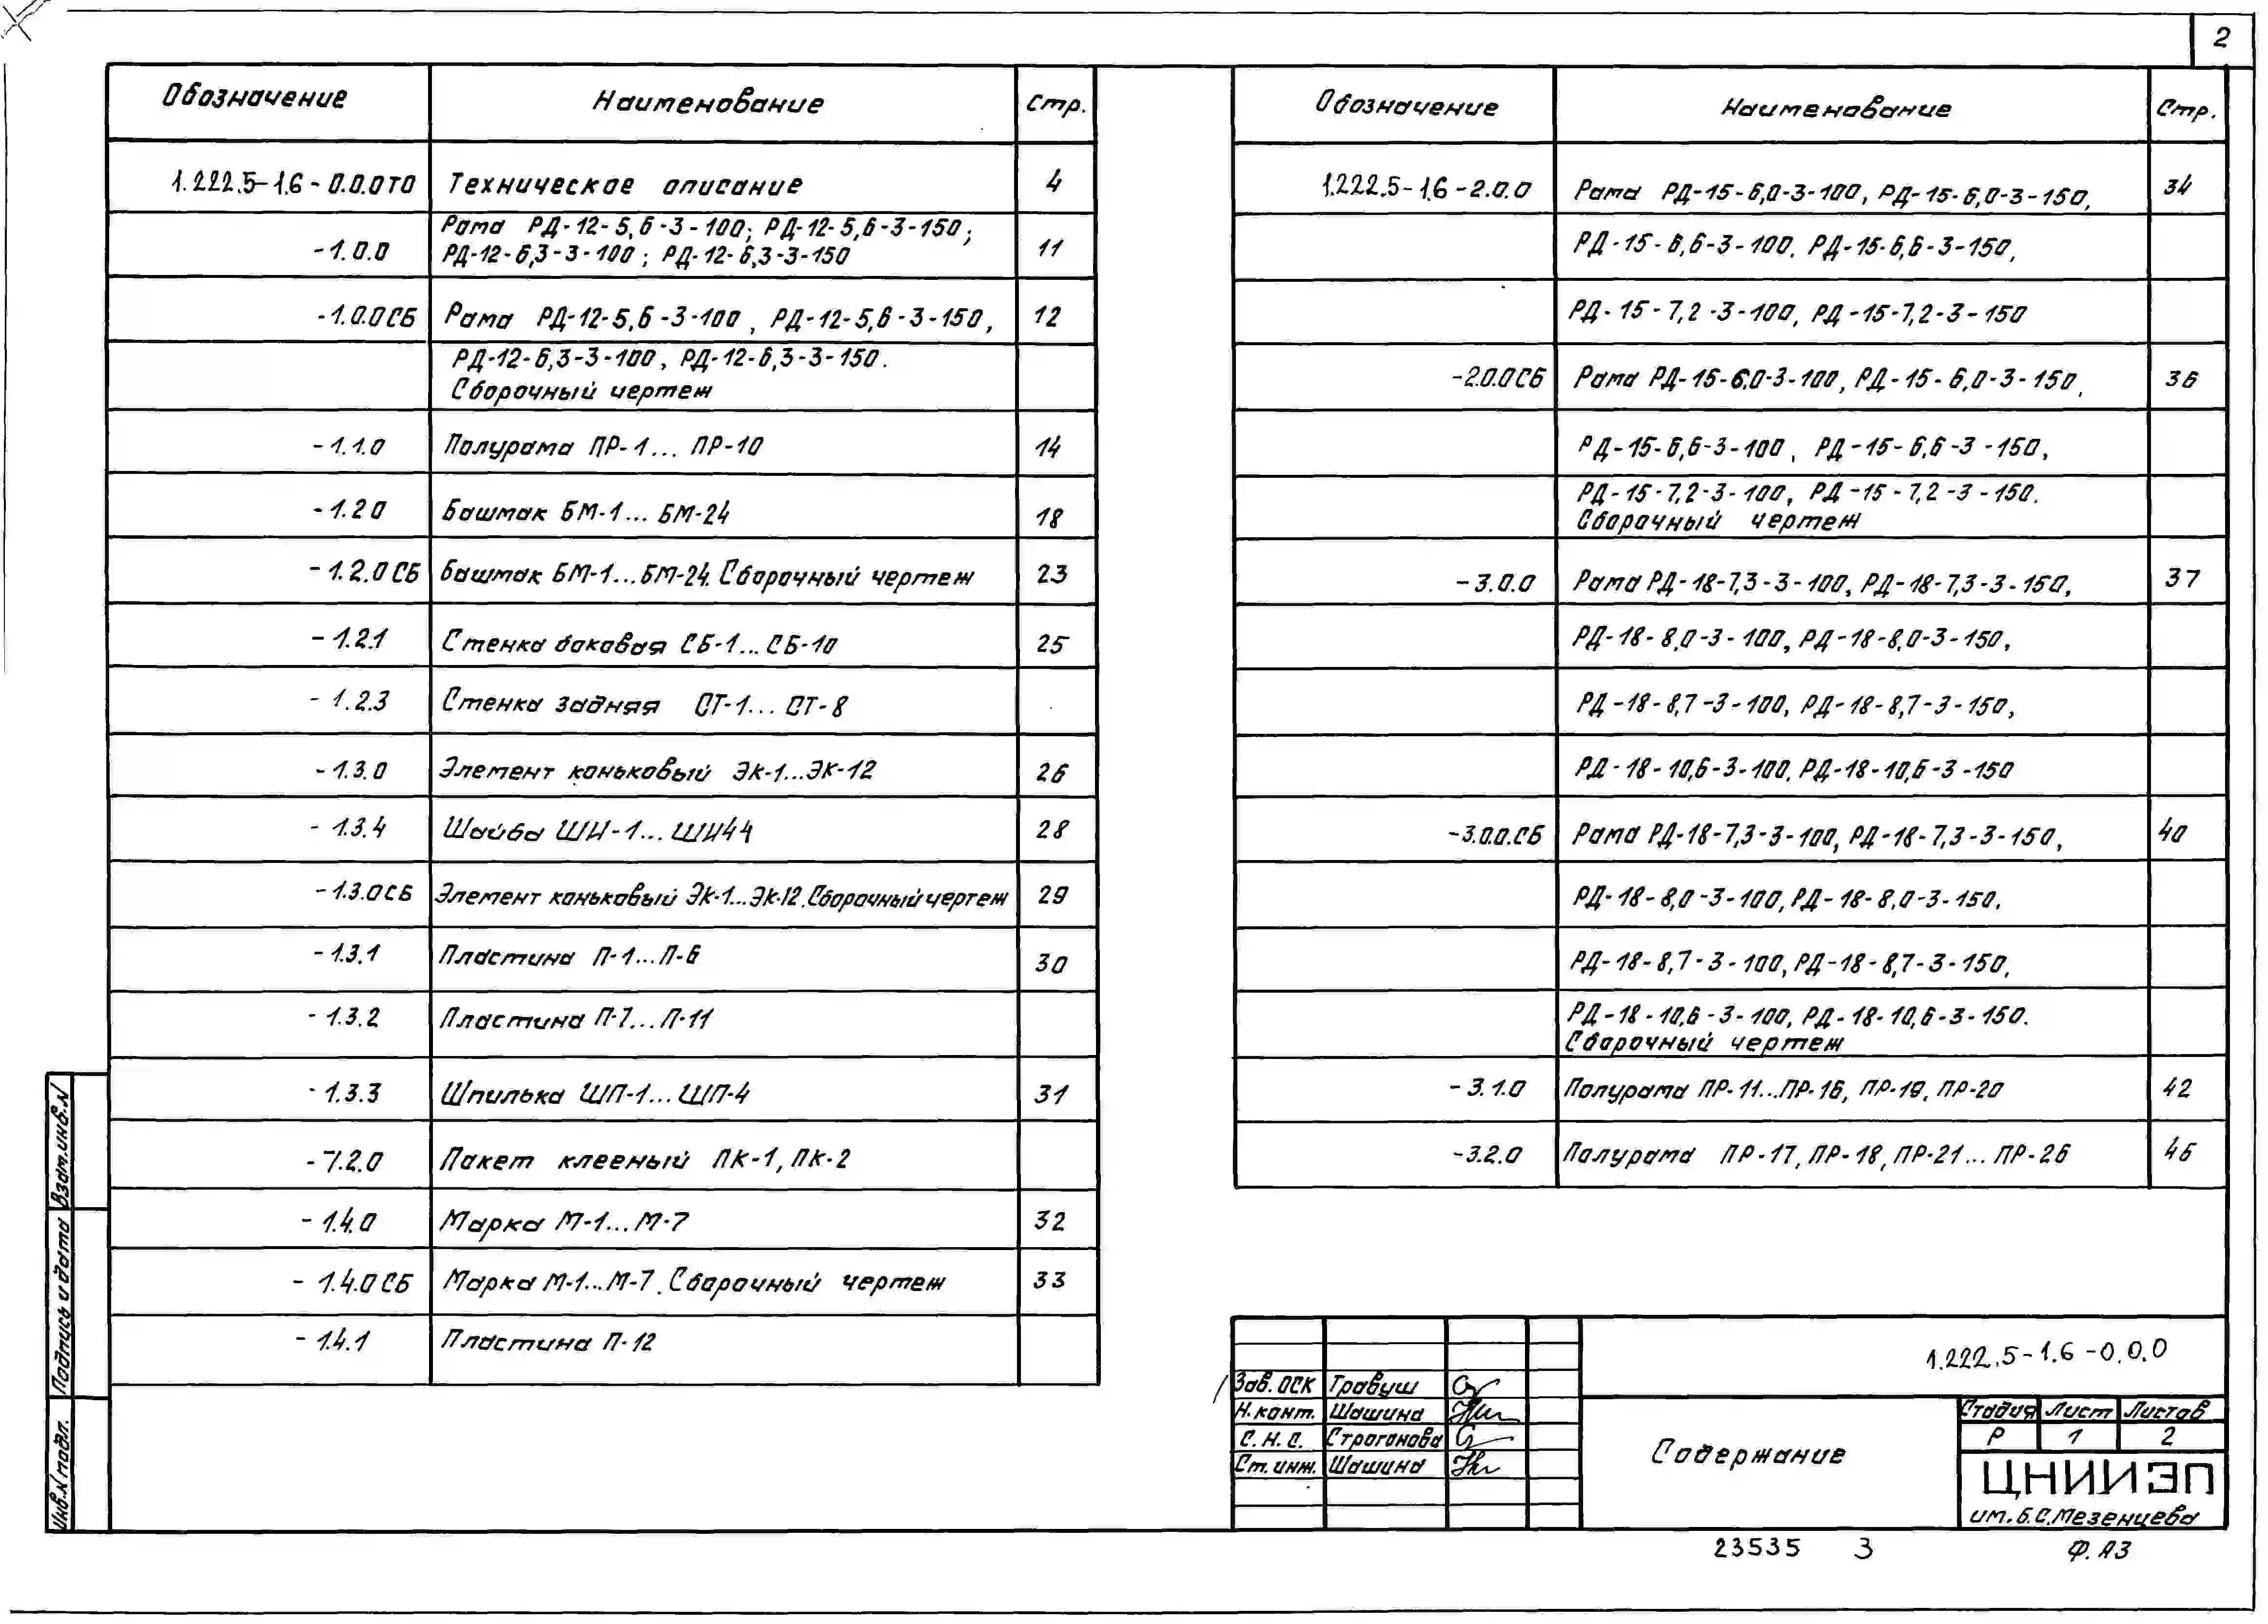 2
Обозначение Наименование Стр.
1.222.5-1.6-0.0.0ТО Техническое описание 4
Рама РД-12-5,6-3-100; РД-12-5,6-3-150;
-1.0.0 РД-12-6,3-3-100; РД-12-6,3-3-150 11
-1.0.0СБ Рама РД-12-5,6-3-100, РД-12-5,6-3-150, 12
РД-12-6,3-3-100, РД-12-6,3-3-150.
Сборочный чертеж
-1.1.0 Полурама ПР-1... ПР-10 14
-1.2 0 Башмак БМ-1... БМ-24 18
-1.2.0СБ Башмак БМ-1...БМ-24. Сборочный чертеж 23
-1.2.1 Стенка боковая СБ-1... СБ-10 25
-1.2.3 Стенка задняя СТ-1... СТ-8
-1.3.0 Элемент коньковый ЭК-1...ЭК-12 26
-1.3.4 Шайба ШИ-1... ШИ44 28
-1.3.0СБ Элемент коньковый ЭК-1...ЭК-12.Сборочный чертеж 29
-1.3.1 Пластина П-1...П-6 30
-1.3.2 Пластина П-7...П-11
-1.3.3 Шпилька ШП-1...ШП-4 31
-7.2.0 Пакет клееный ПК-1, ПК-2
-1.4.0 Марка М-1...М-7 32
-1.4.0СБ Марка М-1...М-7. Сборочный чертеж 33
-1.4.1 Пластина П-12
Обозначение Наименование Стр.
1.222.5-1.6-2.0.0 Рама РД-15-6,0-3-100, РД-15-6,0-3-150, 34
РД-15-6,6-3-100, РД-15-6,6-3-150,
РД-15-7,2-3-100, РД-15-7,2-3-150
-2.0.0СБ Рама РД-15-6,0-3-100, РД-15-6,0-3-150, 36
РД-15-6,6-3-100, РД-15-6,6-3-150,
РД-15-7,2-3-100, РД-15-7,2-3-150.
Сборочный чертеж
-3.0.0 Рама РД-18-7,3-3-100, РД-18-7,3-3-150, 37
РД-18-8,0-3-100, РД-18-8,0-3-150,
РД-18-8,7-3-100, РД-18-8,7-3-150,
РД-18-10,6-3-100, РД-18-10,6-3-150
-3.0.0.СБ Рама РД-18-7,3-3-100, РД-18-7,3-3-150, 40
РД-18-8,0-3-100, РД-18-8,0-3-150,
РД-18-8,7-3-100, РД-18-8,7-3-150,
РД-18-10,6-3-100, РД-18-10,6-3-150.
Сборочный чертеж
-3.1.0 Полурама ПР-11...ПР-16, ПР-19, ПР-20 42
-3.2.0 Полурама ПР-17, ПР-18, ПР-21... ПР-26 46
Взам.инв.N
Подпись и дата
Инв.N подл.
1.222.5-1.6-0.0.0
Зав. ОСК Травуш
Н.конт. Шашина
С.Н.С. Строганова
Ст.инж. Шашина
Содержание
Стадия Лист Листов
Р 1 2
ЦНИИЭП
им.Б.С.Мезенцева
23535 3 Ф.А3